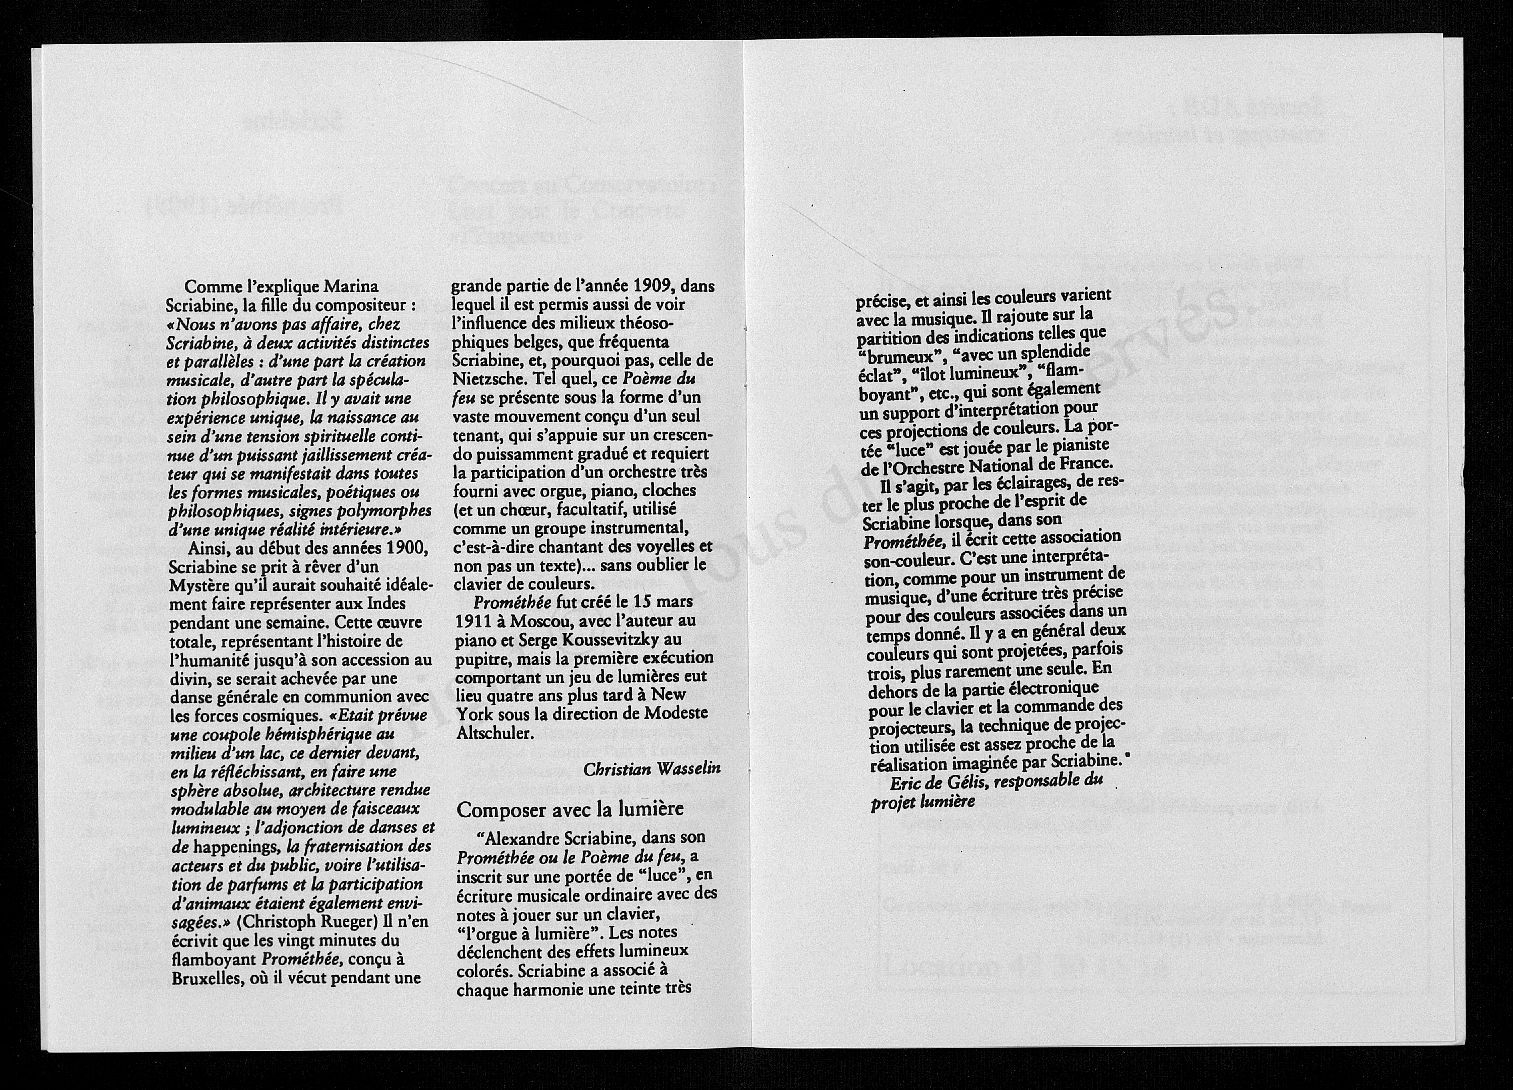 Comme l'explique Marina
Scriabine, la fille du compositeur :
«Nous n'avons pas affaire, chez
Scriabine, à deux activités distinctes
et parallèles : d'une part la création
musicale, d'autre part la spécula-
tion philosophique. Il y avait une
expérience unique, la naissance au
sein d'une tension spirituelle conti-
nue d'un puissant jaillissement créa-
teur qui se manifestait dans toutes
les formes musicales, poétiques ou
philosophiques, signes polymorphes
d'une unique réalité intérieure.»
Ainsi, au début des années 1900,
Scriabine se prit à rêver d'un
Mystère qu'il aurait souhaité idéale-
ment faire représenter aux Indes
pendant une semaine. Cette œuvre
totale, représentant l'histoire de
l'humanité jusqu'à son accession au
divin, se serait achevée par une
danse générale en communion avec
les forces cosmiques. «Etait prévue
une coupole hémisphérique au
milieu d'un lac, ce dernier devant,
en la réfléchissant, en faire une
sphère absolue, architecture rendue
modulable au moyen de faisceaux
lumineux ; l'adjonction de danses et
de happenings, la fraternisation des
acteurs et du public, voire l'utilisa-
tion de parfums et la participation
d'animaux étaient également envi-
sagées.» (Christoph Rueger) Il n'en
écrivit que les vingt minutes du
flamboyant Prométhée, conçu à
Bruxelles, où il vécut pendant une
grande partie de l'année 1909, dans
lequel il est permis aussi de voir
l'influence des milieux théoso-
phiques belges, que fréquenta
Scriabine, et, pourquoi pas, celle de
Nietzsche. Tel quel, ce Poème du
feu se présente sous la forme d'un
vaste mouvement conçu d'un seul
tenant, qui s'appuie sur un crescen-
do puissamment gradué et requiert
la participation d'un orchestre très
fourni avec orgue, piano, cloches
(et un chœur, facultatif, utilisé
comme un groupe instrumental,
c'est-à-dire chantant des voyelles et
non pas un texte)... sans oublier le
clavier de couleurs.
Prométhée fut créé le 15 mars
1911 à Moscou, avec l'auteur au
piano et Serge Koussevitzky au
pupitre, mais la première exécution
comportant un jeu de lumières eut
lieu quatre ans plus tard à New
York sous la direction de Modeste
Altschuler.
Christian Wasselin
Composer avec la lumière
“Alexandre Scriabine, dans son
Prométhée ou le Poème du feu, a
inscrit sur une portée de “luce”, en
écriture musicale ordinaire avec des
notes à jouer sur un clavier,
“l'orgue à lumière”. Les notes
déclenchent des effets lumineux
colorés. Scriabine a associé à
chaque harmonie une teinte très
précise, et ainsi les couleurs varient
avec la musique. Il rajoute sur la
partition des indications telles que
“brumeux”, “avec un splendide
éclat”, “îlot lumineux”, “flam-
boyant”, etc., qui sont également
un support d'interprétation pour
ces projections de couleurs. La por-
tée “luce” est jouée par le pianiste
de l'Orchestre National de France.
Il s'agit, par les éclairages, de res-
ter le plus proche de l'esprit de
Scriabine lorsque, dans son
Prométhée, il écrit cette association
son-couleur. C'est une interpréta-
tion, comme pour un instrument de
musique, d'une écriture très précise
pour des couleurs associées dans un
temps donné. Il y a en général deux
couleurs qui sont projetées, parfois
trois, plus rarement une seule. En
dehors de la partie électronique
pour le clavier et la commande des
projecteurs, la technique de projec-
tion utilisée est assez proche de la
réalisation imaginée par Scriabine.”
Eric de Gélis, responsable du
projet lumière